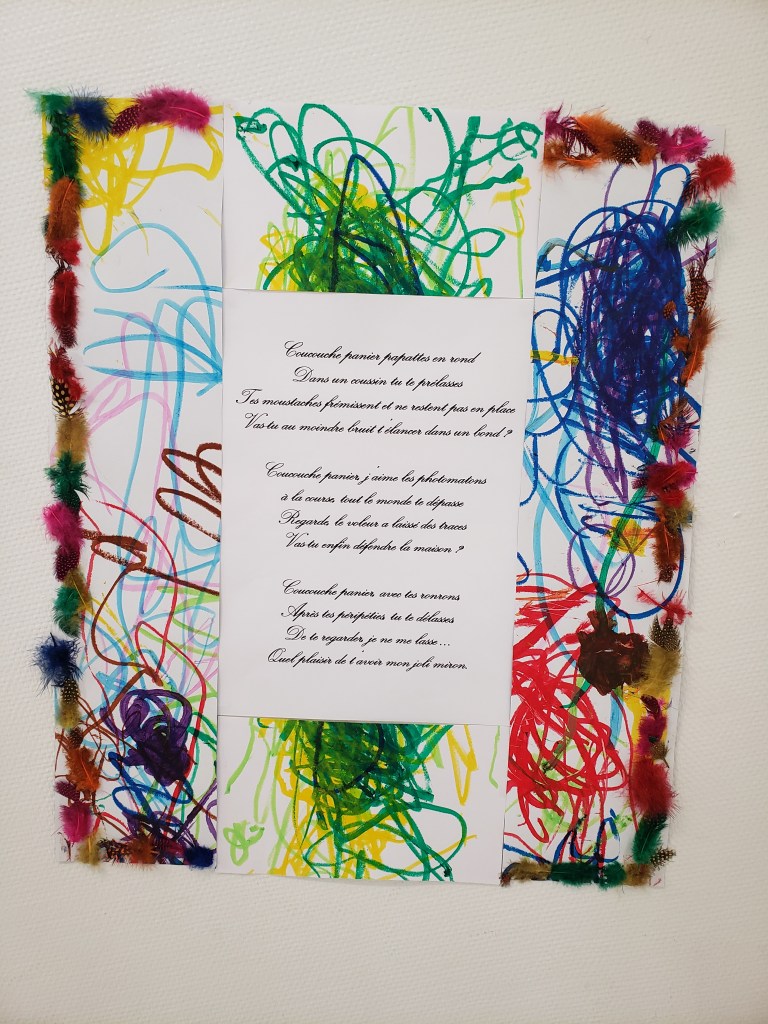 Coucouche panier papattes en rond
Dans un coussin tu te prélasses
Tes moustaches frémissent et ne restent pas en place
Vas-tu au moindre bruit t'élancer dans un bond ?
Coucouche panier, j'aime les photomatons
à la course, tout le monde te dépasse
Regarde, le voleur a laissé des traces
Vas-tu enfin défendre la maison ?
Coucouche panier, avec tes ronrons
Après tes péripéties, tu te délasses
De te regarder, je ne me lasse ...
Quel plaisir de t'avoir mon joli miron.